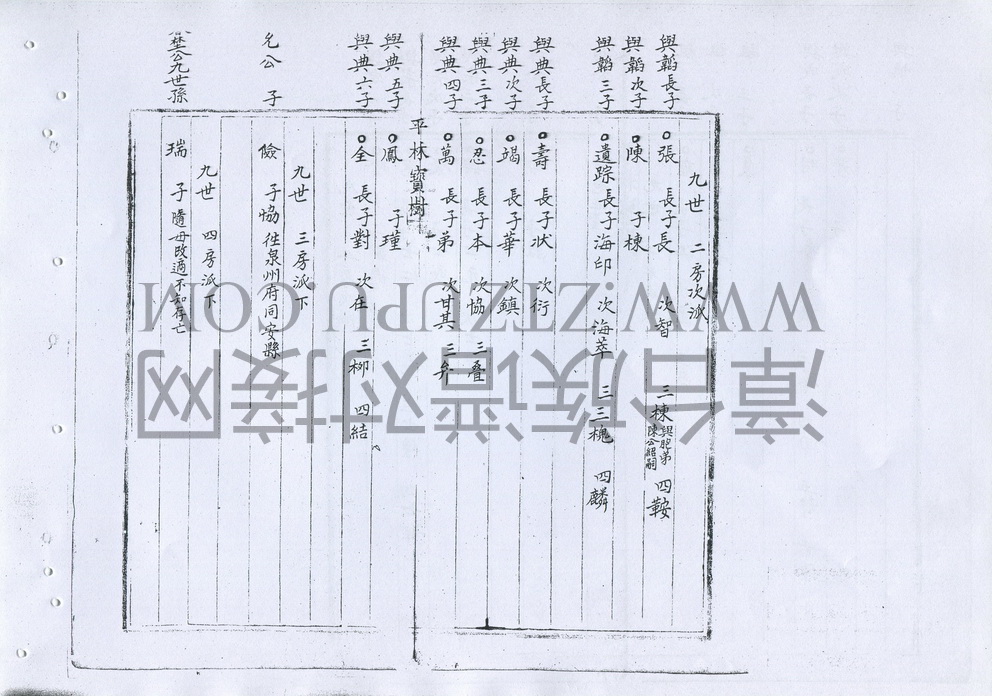 九世 二房次派
與韜長子 張 長子長 次智 三棟與胞弟陳公紹嗣 四鞍
與韜次子 陳 子棟
與韜三子 遺踪 長子海印 次海萃 三三槐 四麟
與典長子 壽 長子状 次衍
與典次子 竭 長子華 次鎮
與典三子 忍 長子本 次協 三叠
與典四子 萬 長子弟 次甘其 三弁
平林寶樹
與典五子 鳳 子瑾
與典六子 全 長子對 次在 三柳 四結
九世 三房派下
允公子 儉 子恊徃泉州府同安縣
九世 四房派下
公九世孫 瑞 子隨母改適不知存亡
WWW.ZTZUPU.COM
漳台族谱对接网